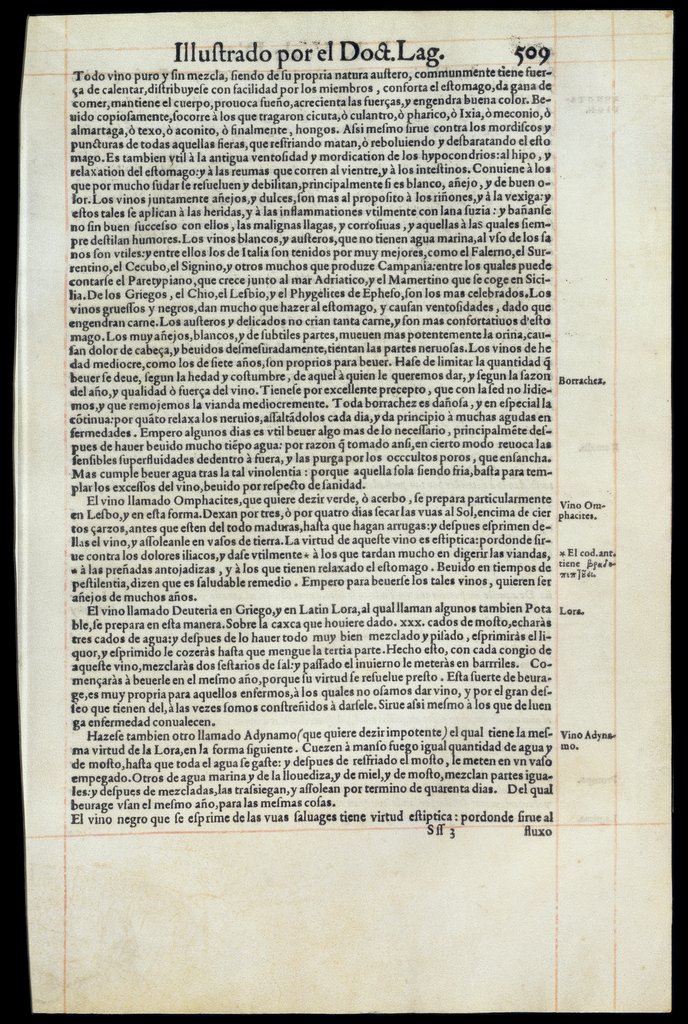 Illuſtrado por el Doct. Lag. 509
Todo vino puro y ſin mezcla, ſiendo de ſu propria natura auſtero, communmente tiene fuer-
ça de calentar, diſtribuyeſe con facilidad por los miembros, conforta el eſtomago, da gana de
comer, mantiene el cuerpo, prouoca ſueño, acrecienta las fuerças, y engendra buena color. Be-
uido copioſamente, ſocorre à los que tragaron cicuta, ò culantro, ò pharico, ò Ixia, ò meconio, ò
almartaga, ò texo, ò aconito, ò finalmente, hongos. Aſsi meſmo ſirue contra los mordiſcos y
puncturas de todas aquellas fieras, que reſfriando matan, ò reboluiendo y desbaratando el eſto
mago. Es tambien vtil à la antigua ventoſidad y mordication de los hypocondrios: al hipo, y
relaxation del eſtomago: y à las reumas que corren al vientre, y à los inteſtinos. Conuiene à los
que por mucho ſudar ſe reſueluen y debilitan, principalmente ſi es blanco, añejo, y de buen o-
lor. Los vinos juntamente añejos, y dulces, ſon mas al propoſito à los riñones, y à la vexiga: y
eſtos tales ſe aplican à las heridas, y à las inflammationes vtilmente con lana ſuzia: y bañanſe
no ſin buen ſucceſſo con ellos, las malignas llagas, y corroſiuas, y aquellas à las quales ſiem-
pre deſtilan humores. Los vinos blancos, y auſteros, que no tienen agua marina, al vſo de los ſa
nos ſon vtiles: y entre ellos los de Italia ſon tenidos por muy mejores, como el Falerno, el Sur-
rentino, el Cecubo, el Signino, y otros muchos que produze Campania: entre los quales puede
contarſe el Paretypiano, que crece junto al mar Adriatico, y el Mamertino que ſe coge en Sici-
lia. De los Griegos, el Chio, el Leſbio, y el Phygelites de Epheſo, ſon los mas celebrados. Los
vinos grueſſos y negros, dan mucho que hazer al eſtomago, y cauſan ventoſidades, dado que
engendran carne. Los auſteros y delicados no crian tanta carne, y ſon mas confortatiuos d'eſto
mago. Los muy añejos, blancos, y de ſubtiles partes, mueuen mas potentemente la orina, cau-
ſan dolor de cabeça, y beuidos deſmeſuradamente, tientan las partes neruoſas. Los vinos de he
dad mediocre, como los de ſiete años, ſon proprios para beuer. Haſe de limitar la quantidad q̃
beuer ſe deue, ſegun la hedad y coſtumbre, de aquel à quien le queremos dar, y ſegun la ſazon
del año, y qualidad ò fuerça del vino. Tieneſe por excellente precepto, que con la ſed no lidie-
mos, y que remojemos la vianda mediocremente. Toda borrachez es dañoſa, y en eſpecial la
cõtinua: por quãto relaxa los neruios, aſſaltãdolos cada dia, y da principio à muchas agudas en
fermedades. Empero algunos dias es vtil beuer algo mas de lo neceſſario, principalmẽte deſ-
pues de hauer beuido mucho tiẽpo agua: por razon q̃ tomado anſi, en cierto modo reuoca las
ſenſibles ſuperfluidades dedentro à fuera, y las purga por los occcultos poros, que enſancha.
Mas cumple beuer agua tras la tal vinolentia: porque aquella ſola ſiendo fria, baſta para tem-
plar los exceſſos del vino, beuido por reſpecto de ſanidad.
Borrachez.
El vino llamado Omphacites, que quiere dezir verde, ò acerbo, ſe prepara particularmente
en Leſbo, y en eſta forma. Dexan por tres, ò por quatro dias ſecar las vuas al Sol, encima de cier
tos çarzos, antes que eſten del todo maduras, haſta que hagan arrugas: y deſpues eſprimen de-
llas el vino, y aſſoleanle en vaſos de tierra. La virtud de aqueſte vino es eſtiptica: pordonde ſir-
ue contra los dolores iliacos, y daſe vtilmente * à los que tardan mucho en digerir las viandas,
* à las preñadas antojadizas, y à los que tienen relaxado el eſtomago. Beuido en tiempos de
peſtilentia, dizen que es ſaludable remedio. Empero para beuerſe los tales vinos, quieren ſer
añejos de muchos años.
Vino Om-
phacites.
* El cod. ant.
tiene
El vino llamado Deuteria en Griego, y en Latin Lora, al qual llaman algunos tambien Pota
ble, ſe prepara en eſta manera. Sobre la caxca que houiere dado. xxx. cados de moſto, echaràs
tres cados de agua: y deſpues de lo hauer todo muy bien mezclado y piſado, eſprimiràs el li-
quor, y eſprimido le cozeràs haſta que mengue la tertia parte. Hecho eſto, con cada congio de
aqueſte vino, mezclaràs dos ſeſtarios de ſal: y paſſado el inuierno le meteràs en barrriles. Co-
mençaràs à beuerle en el meſmo año, porque ſu virtud ſe reſuelue preſto. Eſta ſuerte de beura-
ge, es muy propria para aquellos enfermos, à los quales no oſamos dar vino, y por el gran deſ-
ſeo que tienen del, à las vezes ſomos conſtreñidos à darſele. Sirue aſsi meſmo à los que de luen
ga enfermedad conualecen.
Lora.
Hazeſe tambien otro llamado Adynamo (que quiere dezir impotente) el qual tiene la meſ-
ma virtud de la Lora, en la forma ſiguiente. Cuezen à manſo fuego igual quantidad de agua y
de moſto, haſta que toda el agua ſe gaſte: y deſpues de reſfriado el moſto, le meten en vn vaſo
empegado. Otros de agua marina y de la llouediza, y de miel, y de moſto, mezclan partes igua-
les: y deſpues de mezcladas, las traſsiegan, y aſſolean por termino de quarenta dias. Del qual
beurage vſan el meſmo año, para las meſmas coſas.
Vino Adyna-
mo.
El vino negro que ſe eſprime de las vuas ſaluages tiene virtud eſtiptica: pordonde ſirue al
Sſſ 3 fluxo